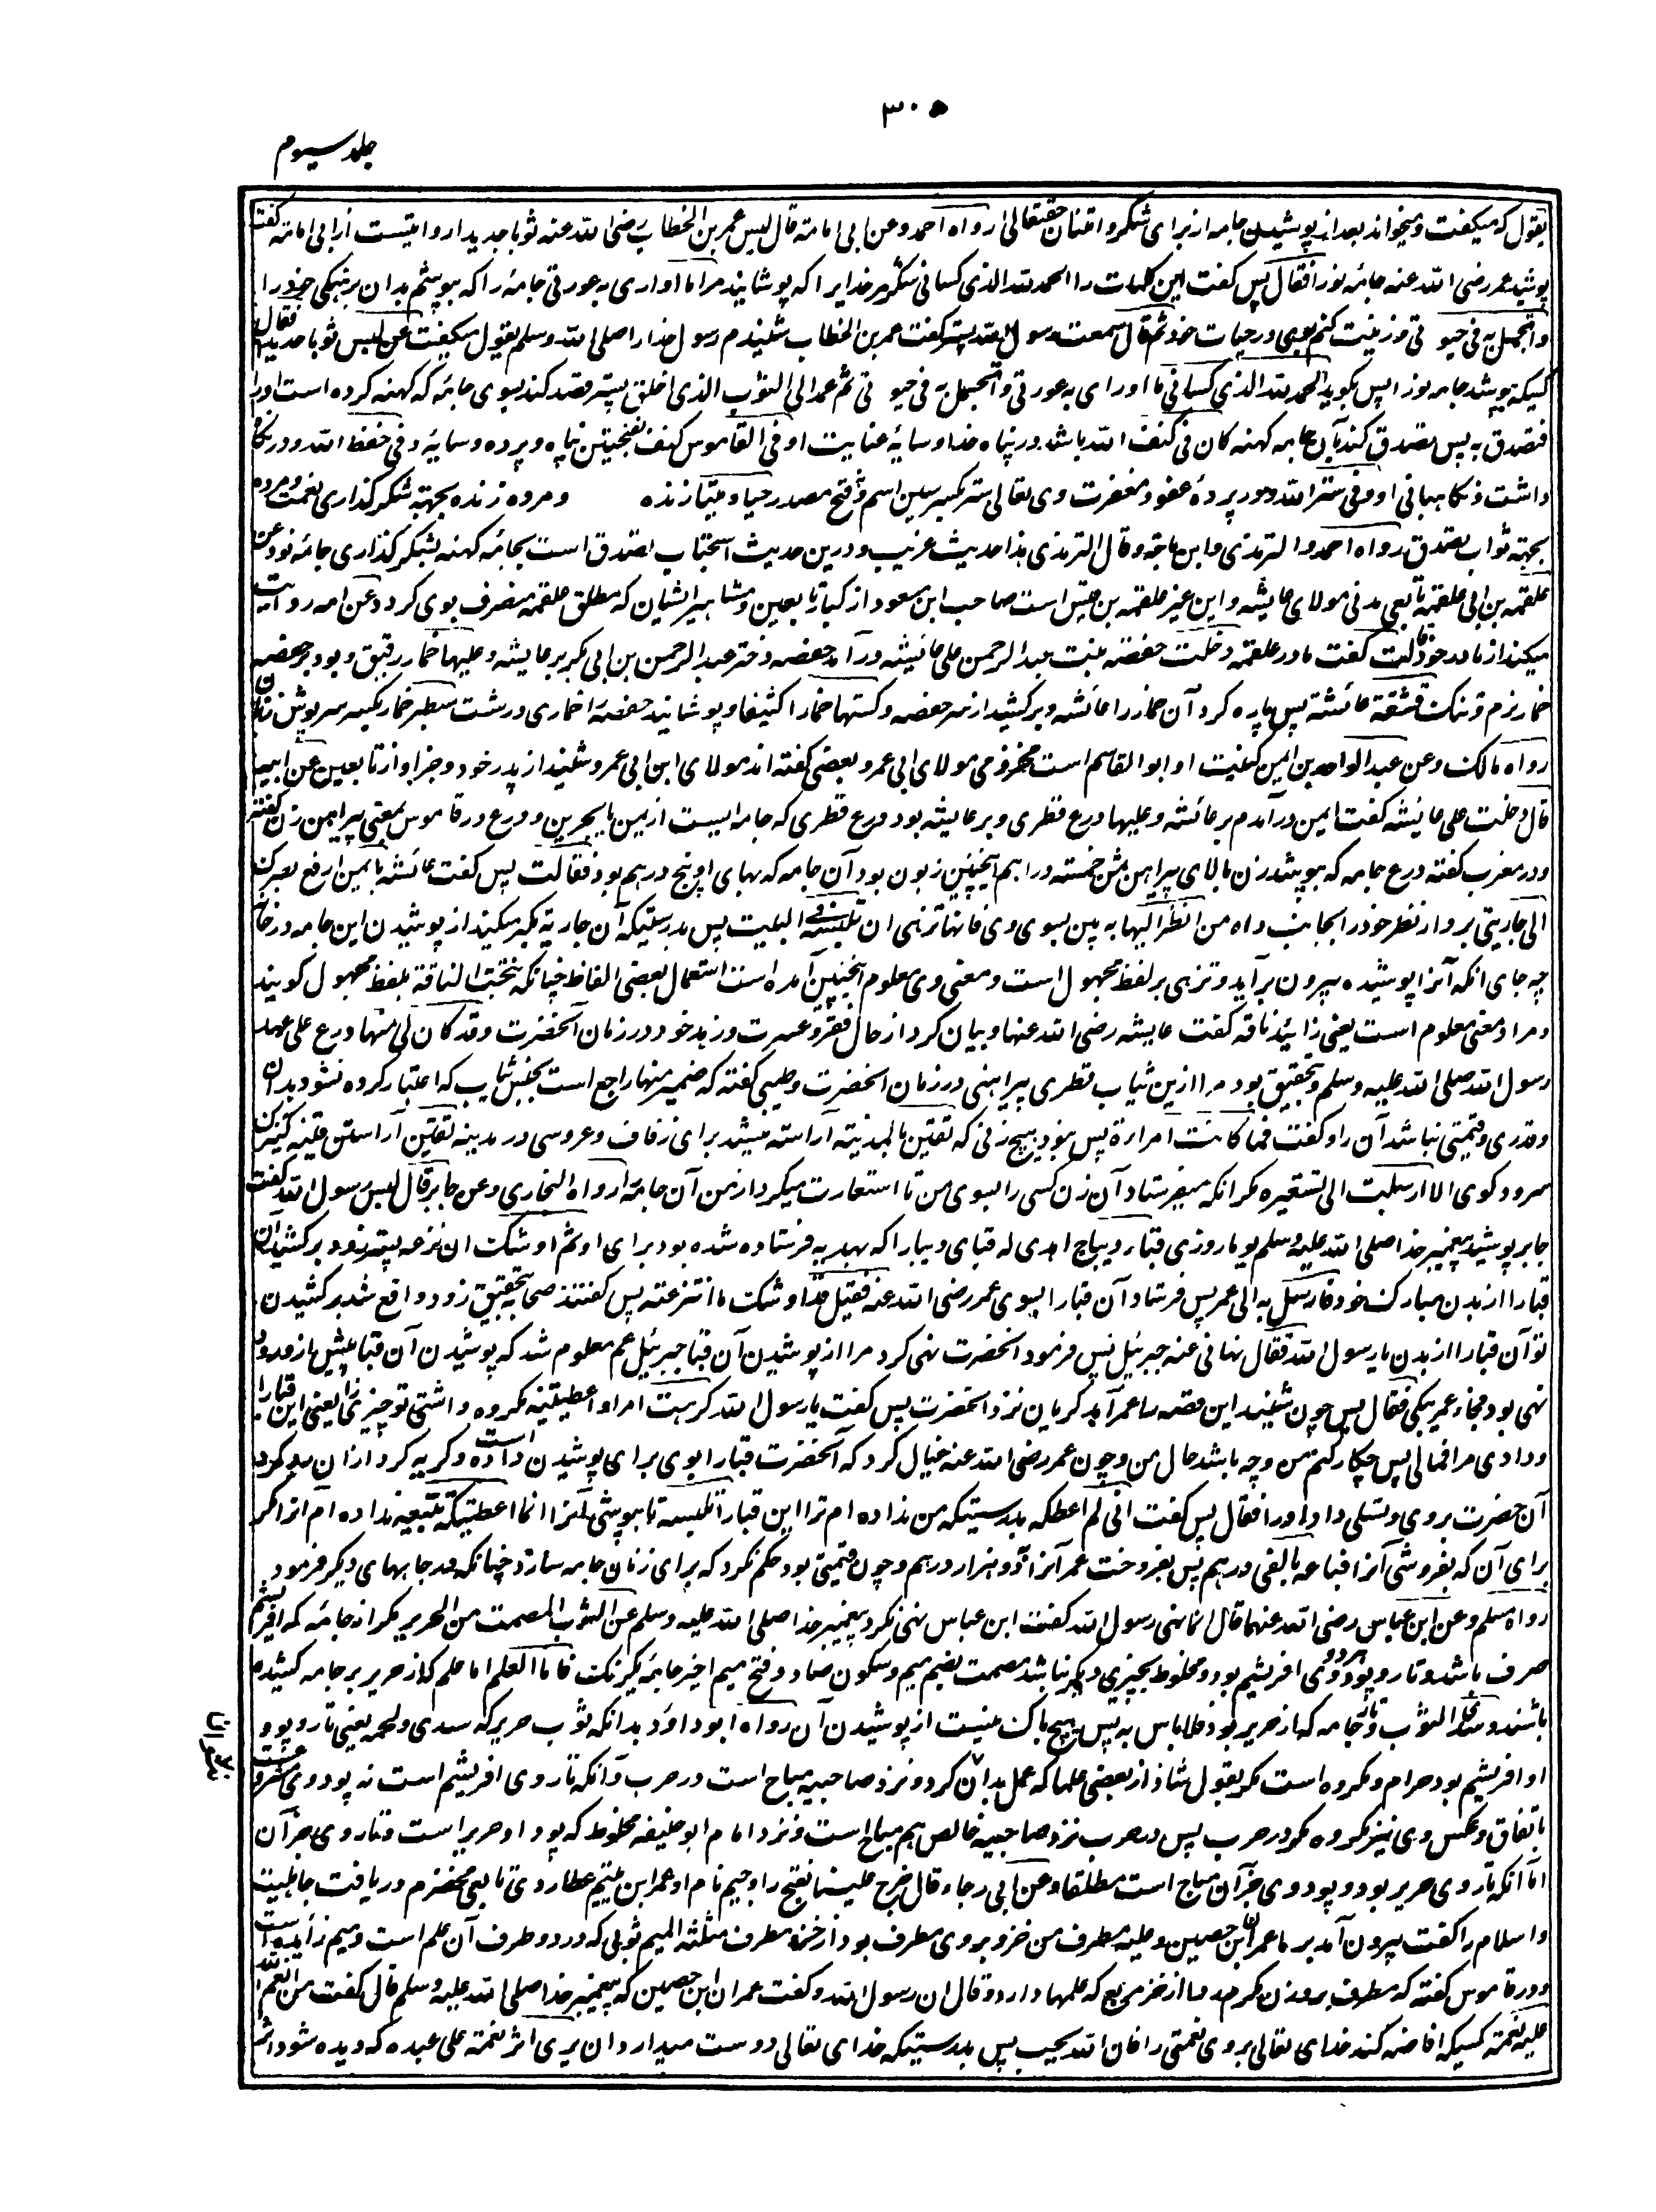 ۳۰۵
جلد سیوم
یقول که میگفت و میخواند بعد از پوشیدن جامه از برای شکر و امتنان حقتعالی رواه احمد وعن ابی امامة قال لبس عمر بن الخطاب رضی الله عنه ثوبا جدیدا روایتست از ابی امامه گفت
پوشید عمر رضی الله عنه جامۀ نو را فقال پس گفت این کلمات را الحمد لله الذی کسانی شکر مر خدایرا که پوشانید مرا ما اواری به عورتی جامۀ را که بپوشم بدان برهنگی خود را
واتجمل به فی حیوتی و زینت کنم بوی در حیات خود ثم قال سمعت رسول الله پستر گفت عمر بن الخطاب شنیدم رسول خدا را صلی الله وسلم یقول میگفت من لبس ثوبا جدیدا فقال
کسیکه بپوشد جامه نو را پس بگوید الحمد لله الذی کسانی ما اورای به عورتی واتجمل به فی حیوتی ثم عمد الی الثوب الذی اخلق پستر قصد کند بسوی جامۀ که کهنه کرده است او را
فتصدق به پس تصدق کند بآن جامه کهنه کان فی کنف الله باشد در پناه خدا و سایۀ عنایت او فی القاموس کنف بفتحتین پناه و پرده و سایۀ وفی حفظ الله و در نگاه
داشت و نگاهبانی او وفی ستر الله و در پردۀ عفو و مغفرت وی تعالی ستر بکسر سین اسم و بفتح مصدر حیا ومیتا زنده و مرده زنده بجهته شکر گذاری نعمت و مرده
بجهته ثواب تصدق رواه احمد والترمذی وابن ماجة وقال الترمذی هذا حدیث غریب و درین حدیث استحباب تصدق است بجامۀ کهنه بشکر گذاری جامۀ نو وعن
علقمه بن ابی علقمة تابعی مدنی مولای عایشه و این غیر علقمه بن قیس است صاحب ابن مسعود از کبار تابعین و مشاهیر ایشان که مطلق علقمه منصرف بوی گردد عن امه روایت
میکند از مادر خود قالت گفت مادر علقمه دخلت حفصة بنت عبد الرحمن علی عائشه درآمد حفصه دختر عبد الرحمن بن ابی بکر بر عایشه وعلیها خمار رقیق و بود بر حفصه
خمار نرم و تنک فشقته عائشة پس پاره کرد آن خمار را عائشه و برکشید از سر حفصه وکستها خمارا کثیفا و پوشانید حفصه را خماری درشت سطبر خمار بکسر سرپوش زنان
رواه مالک وعن عبد الواحد بن ایمن کنیت او ابو القاسم است مخزومی مولای ابی عمرو و بعضی گفته اند مولای ابن ابی عمرو شنید از پدر خود و جز او از تابعین عن ابیه
قال دخلت علی عایشه گفت ایمن درآمدم بر عائشه وعلیها درع قطری و بر عایشه بود درع قطری که جامه ایست از یمن یا بحرین و درع در قاموس بمعنی پیراهن زن گفته
و در مغرب گفته درع جامه که بپوشد زن بالای پیراهن ثمن خمسة دراهم اینچنین زبون بود آن جامه که بهای او پنج درهم بود فقالت پس گفت عائشه بایمن ارفع بصرک
الی جاریتی بردار نظر خود را بجانب داه من انظر الیها به بین بسوی وی فانها تزهی ان تلبسه فی البیت پس بدرستیکه آن جاریه تکبر میکند از پوشیدن این جامه در خانه
چه جای انکه آنرا پوشیده بیرون برآید و تزهی بر لفظ مجهول است و معنی وی معلوم اینچنین آمده است استعمال بعضی الفاظ چنانکه نتجت الناقة بلفظ مجهول گویند
و مراد معنی معلوم است یعنی زائید ناقه گفت عایشه رضی الله عنها و بیان کرد از حال فقر و عسرت و زهد خود در زمان آنحضرت وقد کان لی منها درع علی عهد
رسول الله صلی الله علیه وسلم و تحقیق بود مرا ازین ثیاب قطری پیراهنی در زمان انحضرت و طیبی گفته که ضمیر منها راجع است بجنس ثیاب که اعتبار کرده نشود بدان
و قدری و قیمتی نباشد آن را و گفت فما کانت امراة پس نبود هیچ زنی که تقین بالمدینة آراسته میشد برای زفاف و عروسی در مدینه تقیین آراستن قینه کنیزک
سرود گوی الا ارسلت الی تستعیره مگر انکه میفرستاد آن زن کسی را بسوی من تا استعارت میکرد از من آن جامه را رواه البخاری وعن جابر قال لبس رسول الله گفت
جابر پوشید پیغمبر خدا صلی الله علیه وسلم یوما روزی قباء دیباج اهدی له قبای دیبا را که هدیه فرستاده شده بود برای او ثم اوشک ان نزعه پستر زود برکشید آن
قبا را از بدن مبارک خود فارسل به الی عمر پس فرستاد آن قبا را بسوی عمر رضی الله عنه فقیل قد اوشک ما انتزعته پس گفتند صحابه بتحقیق زود واقع شد برکشیدن
تو آن قبا را از بدن یا رسول الله فقال نهانی عنه جبرئیل پس فرمود انحضرت نهی کرد مرا از پوشیدن آن قبا جبرئیل عم معلوم شد که پوشیدن آن قبا پیش از ورود
نهی بود فجاء عمر یبکی فقال پس چون شنید این قصه را عمر آمد گریان نزد انحضرت پس گفت یا رسول الله کرهت امرا واعطیتنیه مکروه داشتی تو چیزی را یعنی این قبا را
و دادی مرا فمالی پس چکار کنم من و چه باشد حال من و چون عمر رضی الله عنه خیال کرد که آنحضرت قبا را بوی برای پوشیدن داده است و گریه کرد ازان
آن حضرت بر وی و تسلی داد او را فقال پس گفت انی لم اعطکه بدرستیکه من نداده ام ترا این قبا را تلبسه تا بپوشی آنرا انما اعطیتکه تبیعه نداده ام انرا مگر
برای آن که بفروشی آنرا فباعه بالفی درهم پس بفروخت عمر آنرا بدو هزار درهم و چون قیمتی بود حکم نکرد که برای زنان جامه سازد چنانکه در جامهای دیگر فرمود
رواه مسلم وعن ابن عباس رضی الله عنهما قال انما نهی رسول الله گفت ابن عباس نهی نکرد پیغمبر خدا صلی الله علیه وسلم عن الثوب المصمت من الحریر مگر از جامۀ که ابریشم
صرف باشد و تار و پود وی هر دو ابریشم بود و مخلوط بچیزی دیگر نباشد مصمت بضم میم و سکون صاد و فتح میم اخیر جامۀ یکرنگ فاما العلم اما علم که از حریر بر جامه کشیده
باشند وسدی الثوب و تار جامه که از حریر بود فلا باس به پس هیچ باک نیست از پوشیدن آن رواه ابو داود بدانکه ثوب حریر که سدی و لحمه یعنی تار و پود
او ابریشم بود حرام و مکروه است مگر بقول شاذ از بعضی علما که عمل بدان کرد و نزد صاحبیه مباح است در حرب و آنکه تار وی ابریشم است نه پود وی مشروعست
باتفاق و عکس وی نیز مکروه مگر در حرب پس در حرب نزد صاحبیه خالص هم مباح است و نزد امام ابو حنیفه مخلوط که پود او حریر است و تار وی جز آن
اما آنکه تار وی حریر بود و پود وی جز آن مباح است مطلقا وعن ابی رجاء قال خرج علینا بفتح را و جیم نام او عمر ابن تیم عطاردی تابعی مخضرم دریافت جاهلیت
و اسلام را گفت بیرون آمد بر ما عمران ابن حصین وعلیه مطرف من خز و بر وی مطرف بود از خز و مطرف مثلثه المیم ثوبی که در دو طرف آن علم است و میم زایده است
و در قاموس گفته که مطرف بر وزن مکرم ردا از خز مربع که علمها دارد وقال ان رسول الله و گفت عمران ابن حصین که پیغمبر خدا صلی الله علیه وسلم قال گفت من انعم الله
علیه نعمة کسیکه افاضه کند خدای تعالی بر وی نعمتی را فان الله یحب پس بدرستیکه خدای تعالی دوست میدارد ان یری اثر نعمته علی عبده که دیده شود اثر